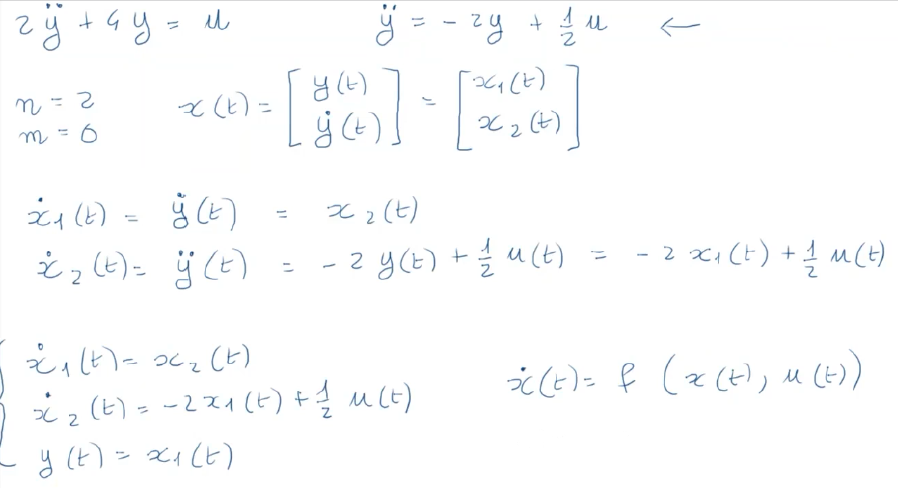 2ÿ + 4y = u    ÿ = - 2y + 1/2 u ←
n = 2
m = 0
x(t) = [y(t) ẏ(t)] = [x₁(t) x₂(t)]
ẋ₁(t) = ẏ(t) = x₂(t)
ẋ₂(t) = ÿ(t) = - 2 y(t) + 1/2 u(t) = - 2 x₁(t) + 1/2 u(t)
ẋ₁(t) = x₂(t)
ẋ₂(t) = -2x₁(t) + 1/2 u(t)
y(t) = x₁(t)
ẋ(t) = f (x(t), u(t))